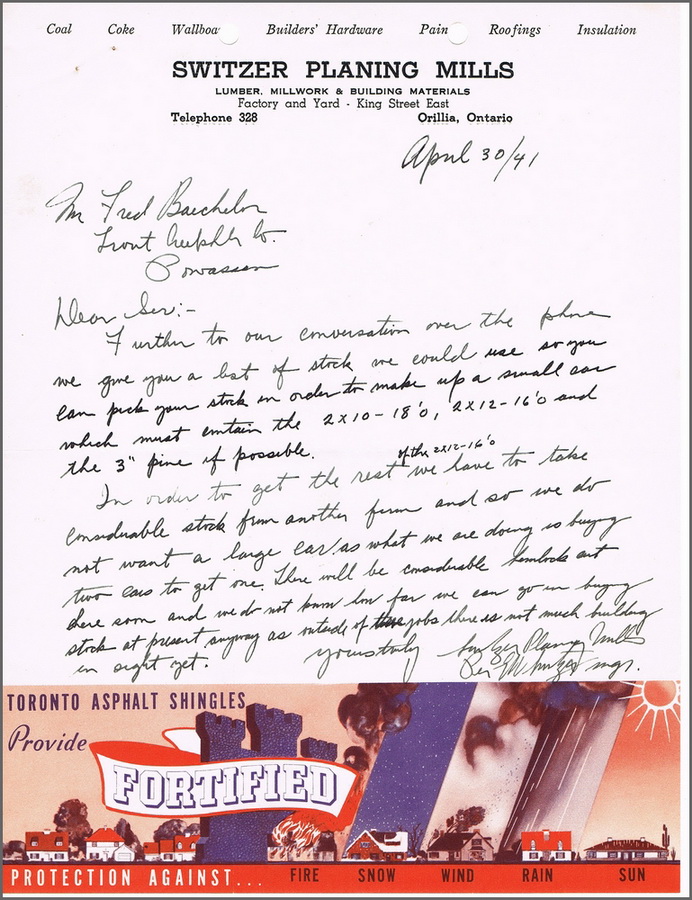 Coal Coke Wallboa Builders' Hardware Pain Roofings Insulation
SWITZER PLANING MILLS
LUMBER, MILLWORK & BUILDING MATERIALS
Factory and Yard - King Street East
Telephone 328 Orillia, Ontario
April 30/41
Mr Fred Baechelor
Trout Co.
Powassan
Dear Sir:-
Further to our conversation over the phone
we give you a list of stock we could use so you
can pick your stock in order to make up a small car
which must contain the 2x10-18'0, 2x12-16'0 and
the 3" pine if possible.
of the 2x12-16'0
In order to get the rest we have to take
considerable stock from another firm and so we do
not want a large car as what we are doing is buying
two cars to get one. There will be considerable hemlock cut
here soon and we do not know how far we can go in buying
stock at present anyway as outside of these jobs there is not much building
in sight yet.
yours truly Switzer Planing Mills
Per Switzer mgr.
TORONTO ASPHALT SHINGLES
Provide
FORTIFIED
PROTECTION AGAINST... FIRE SNOW WIND RAIN SUN